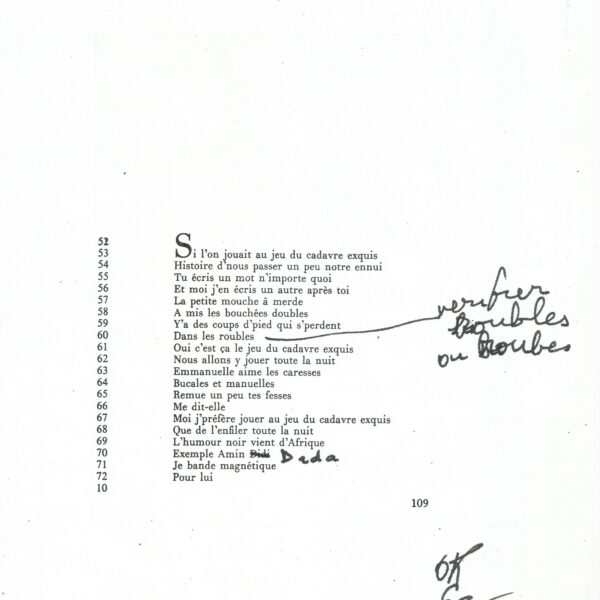 52
53 Si l'on jouait au jeu du cadavre exquis
54 Histoire d'nous passer un peu notre ennui
55 Tu écris un mot n'importe quoi
56 Et moi j'en écris un autre après toi
57 La petite mouche à merde
58 A mis les bouchées doubles
59 Y'a des coups d'pied qui s'perdent
60 Dans les roubles
61 Oui c'est ça le jeu du cadavre exquis
62 Nous allons y jouer toute la nuit
63 Emmanuelle aime les caresses
64 Bucales et manuelles
65 Remue un peu tes fesses
66 Me dit-elle
67 Moi j'préfère jouer au jeu du cadavre exquis
68 Que de l'enfiler toute la nuit
69 L'humour noir vient d'Afrique
70 Exemple Amin Didi Dada
71 Je bande magnétique
72 Pour lui
10
verifier
roubles
ou
109
OK